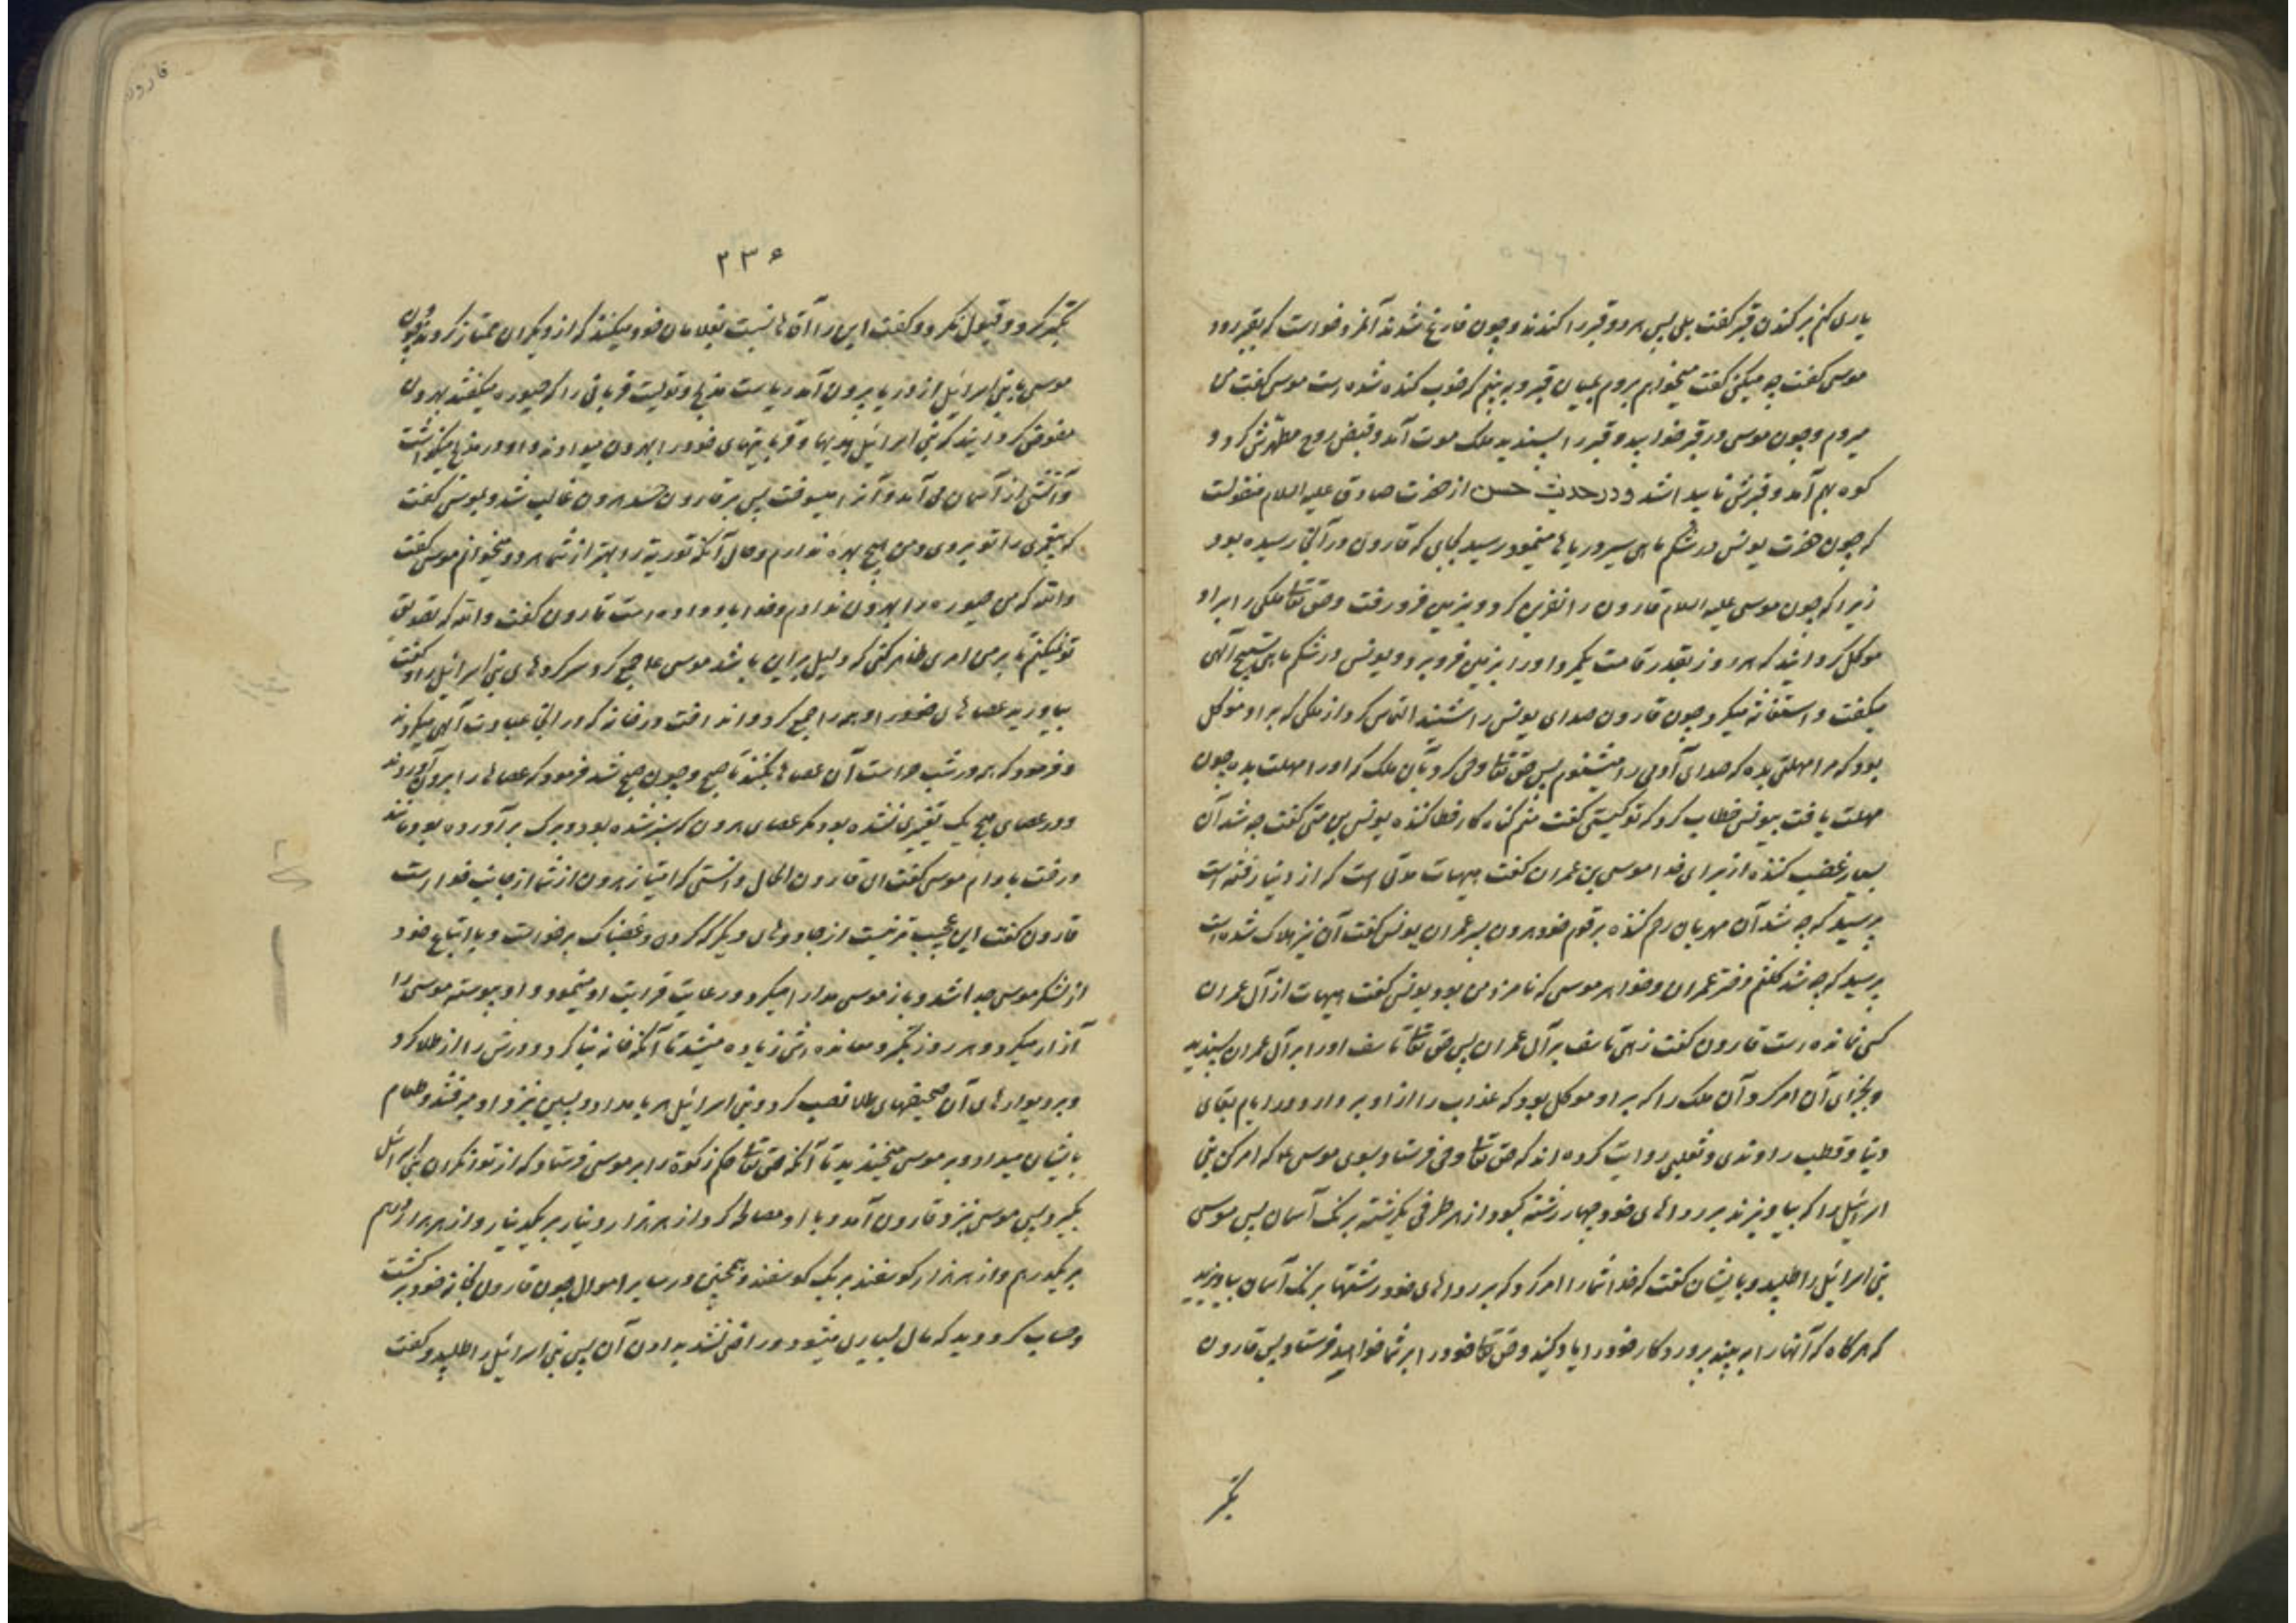 یاری کنم بر کندن قبر گفت بلی پس هر دو قبر را کندند و چون فارغ شدند آنمرد خواست که بقبر رود
موسی گفت چه میکنی گفت میخواهم بروم بمیان قبر و ببینم که خوب کنده شده است موسی گفت من
میروم و چون موسی در قبر خوابید و قبر را پسندید ملک موت آمد و قبض روح مطهرش کرد و
کوه بهم آمد و قبرش ناپیدا شد و در حدیث حسن از حضرت صادق علیه السلام منقولست
که چون حضرت یونس در شکم ماهی سیر دریاها مینمود رسید بجایی که قارون در آنجا رسیده بود
زیرا که چون موسی علیه السلام قارون را نفرین کرد و بزمین فرو رفت و حق تعالی ملکی را بر او
موکل گردانید که هر روز بقدر قامت یکمرد او را بزمین فرو برد و یونس در شکم ماهی تسبیح آلهی
میگفت و استغفار میکرد چون قارون صدای یونس را شنید التماس کرد از ملکی که بر او موکل
بود که مرا مهلتی بده که صدای آدمی را میشنوم پس حق تعالی وحی کرد بآن ملک که او را مهلت بده چون
مهلت یافت بیونس خطاب کرد که تو کیستی گفت منم گناه کار خطا کننده یونس بن متی گفت چه شد آن
بسیار غضب کننده از برای خدا موسی بن عمران گفت هیهات مدتی است که از دنیا رفته است
پرسید که چه شد آن مهربان رحم کننده بر قوم خود هرون پسر عمران یونس گفت آن نیز هلاک شده است
پرسید که چه شد کلثم دختر عمران و خواهر موسی که نامزد من بود یونس گفت هیهات از آل عمران
کسی نمانده است قارون گفت زهی تاسف بر آل عمران پس حق تعالی تاسف او را بر آل عمران پسندید
و بجزای آن امر کرد آن ملک را که بر او موکل بود که عذاب را از او بردارد در ایام بقای
دنیا و قطب راوندی و ثعلبی روایت کرده اند که حق تعالی وحی فرستاد بسوی موسی ع که امر کن بنی
اسرائیل را که بیاویزند بر رداهای خود چهار رشته کبود از هر طرفی یکرشته برنگ آسمان پس موسی
بنی اسرائیل را طلبید و بایشان گفت که خدا شما را امر کرد که بر رداهای خود رشتهها برنگ آسمان بیاویزید
که هرگاه که آنها را ببینید پروردگار خود را یاد کنید و حق تعالی خود را بر شما خواهد فرستاد پس قارون
تکبر
۲۳۶
تکبر کرد و قبول نکرد و گفت این را آقاها نسبت بغلامان خود میکنند که از دیگران ممتاز گردند و چون
موسی با بنی اسرائیل از دریا بیرون آمد ریاست مذبح و تولیت قربانی را که حبوره میگفتند بهرون
مفوض گردانید که بنی اسرائیل هدیها و قربانیهای خود را بهرون میدادند و او در مذبح میگذاشت
و آتشی از آسمان می آمد و آنرا میسوخت پس بر قارون حسد هرون غالب شد و بموسی گفت
که پیغمبری را تو بردی و من هیچ بهره ندارم و حال آنکه توریة را بهتر از شما هر دو میخوانم موسی گفت
والله که من حبوره را بهرون ندادم و خدا باو داده است قارون گفت والله که تصدیق
تو نمیکنم تا بر من امری ظاهر کنی که دلیل بر این باشد موسی ع جمع کرد سرکردهای بنی اسرائیل را و گفت
بیاورید عصاهای خود را و همه را جمع کرد و انداخت در خانه که در آنجا عبادت آلهی میکردند
و فرمود که همه در شب حراست آن عصاها بکنند تا صبح و چون صبح شد فرمود که عصاها را بیرون آوردند
و در عصای هیچ یک تغیری نشده بود مگر عصای هرون که سبز شده بود و برک بر آورده بود مانند
درخت بادام موسی گفت ای قارون الحال دانستی که امتیاز هرون از شما از جانب خدا است
قارون گفت این عجیب تر نیست از جادوهای دیگر که کردی و غضبناک برخواست و با اتباع خود
از لشکر موسی جدا شد و باز موسی مدارا میکرد و رعایت قرابت او مینمود و او پیوسته موسی را
آزار میکرد و هر روز تکبر و معانده اش زیاده میشد تا آنکه خانه بنا کرد و درش را از طلا کرد
و بر دیوارهای آن صحیفهای طلا نصب کرد و بنی اسرائیل هر بامداد و پسین نزد او میرفتند و طعام
بایشان میداد و بر موسی میخندیدند تا آنکه حق تعالی حکم زکوة را بر موسی فرستاد که از توانگران بنی اسرائیل
بگیرد پس موسی بنزد قارون آمد و با او مصالحه کرد از هر هزار دینار بر یکدینار و از هر هزار درهم
بر یکدرهم و از هر هزار گوسفند بر یک گوسفند و همچنین در سایر اموال چون قارون بخانه خود برگشت
و حساب کرد دید که مال بسیاری میشود و راضی نشد به دادن آن پس بنی اسرائیل را طلبید و گفت
قارون